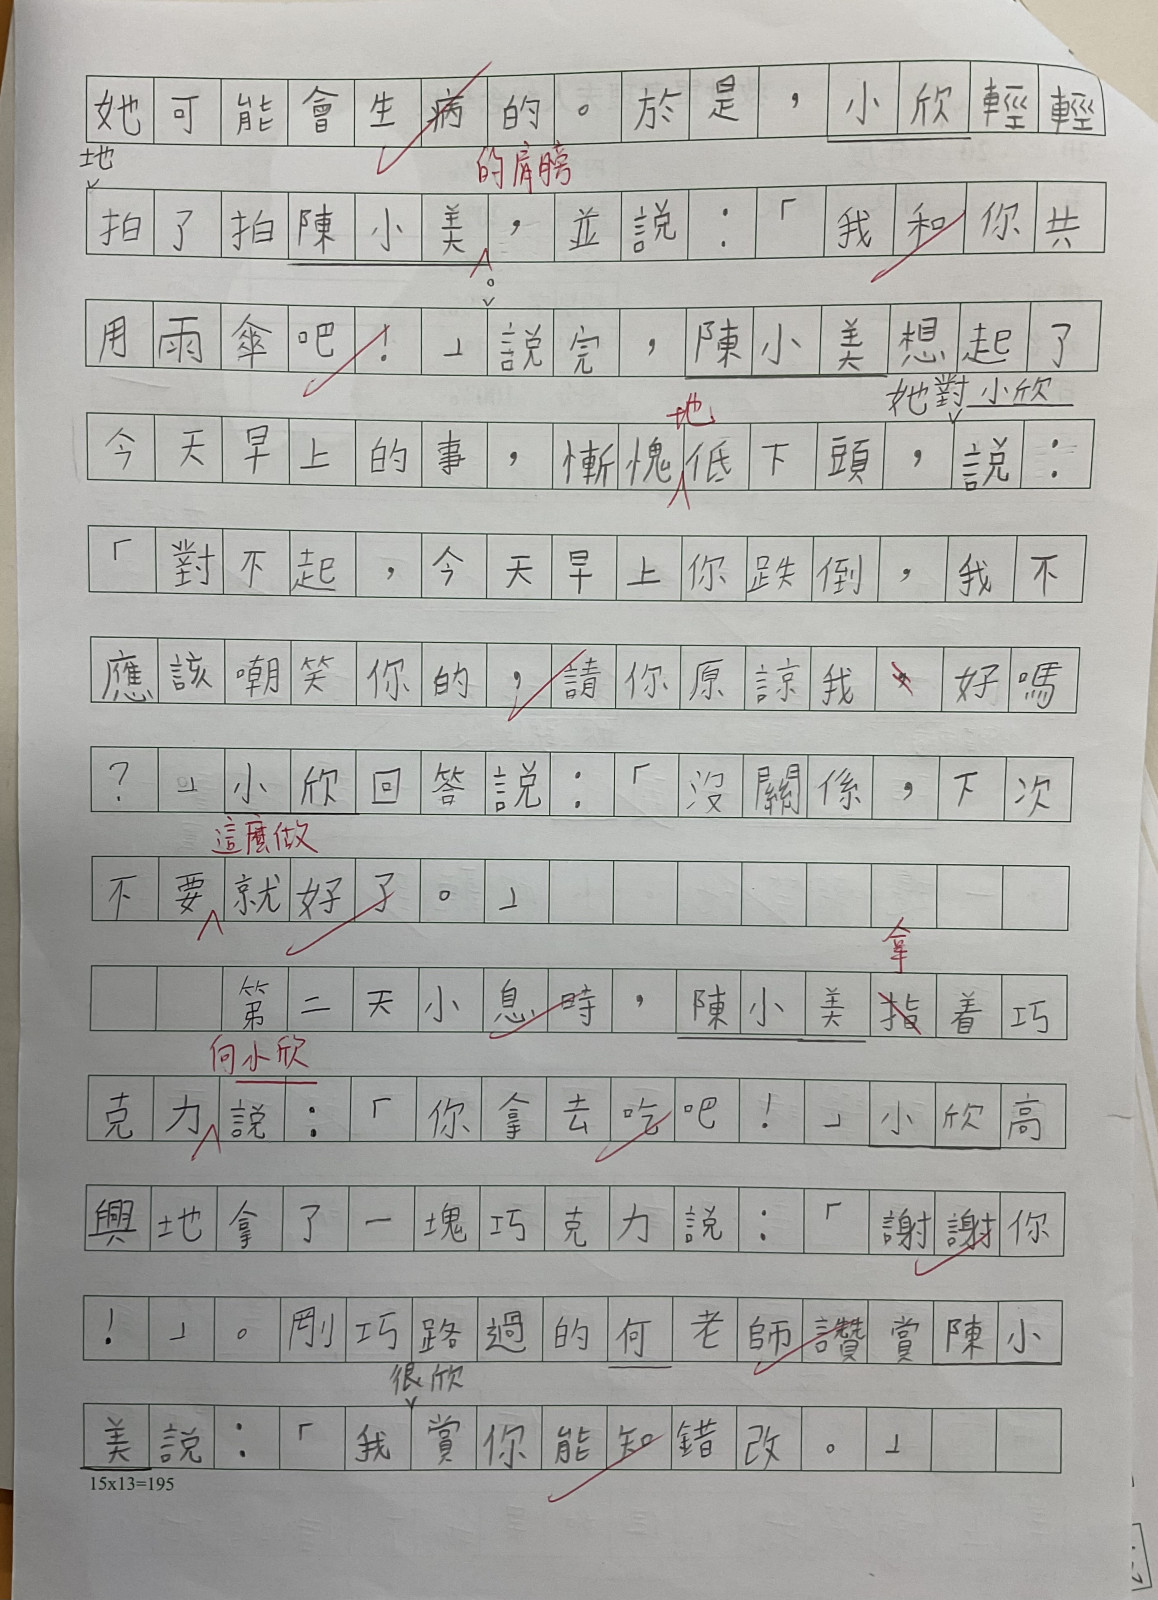 她可能會生病的。於是，小欣輕輕
地
的肩膀
拍了拍陳小美，並説：「我和你共
。
用雨傘吧！」説完，陳小美想起了
她對小欣
地
今天早上的事，慚愧低下頭，説：
「對不起，今天早上你跌倒，我不
應該嘲笑你的，請你原諒我好嗎
？」小欣回答説：「沒關係，下次
這麼做
不要就好了。」
拿
第二天小息時，陳小美指着巧
向小欣
克力説：「你拿去吃吧！」小欣高
興地拿了一塊巧克力説：「謝謝你
！」。剛巧路過的何老師讚賞陳小
很欣
美説：「我賞你能知錯改。」
15x13=195